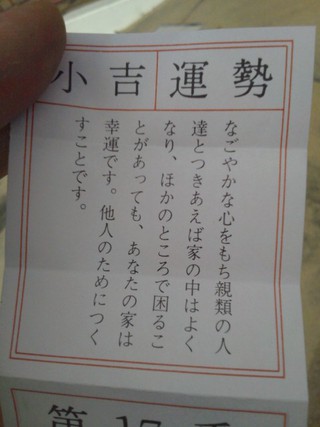 運勢
小吉
なごやかな心をもち親類の人
達とつきあえば家の中はよく
なり、ほかのところで困るこ
とがあっても、あなたの家は
幸運です。他人のためにつく
すことです。
第